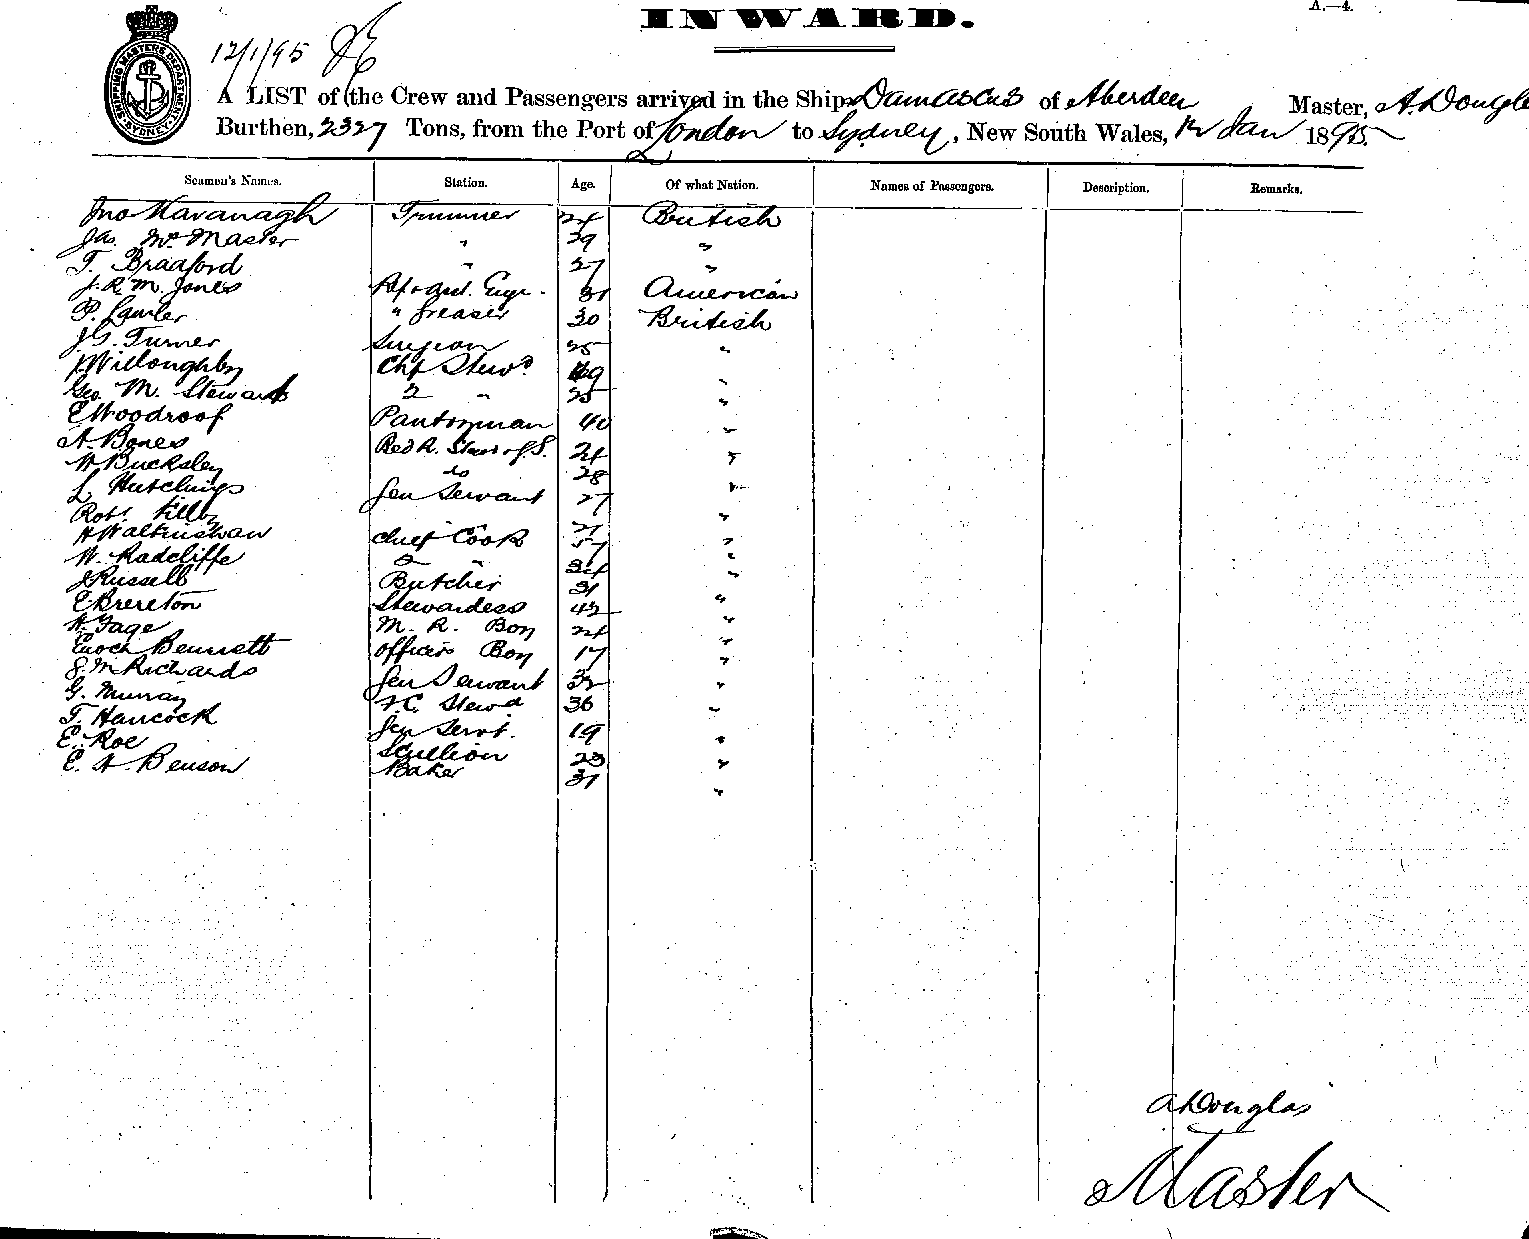 INWARD.
A.—4.
SHIPPING MASTERS DEPARTMENT SYDNEY
12/1/95
A LIST of the Crew and Passengers arrived in the Ship Damascus of Aberdeen Master, A. Douglas
Burthen, 2327 Tons, from the Port of London to Sydney, New South Wales, 12 Jan 1895
Seamen's Names. Station. Age. Of what Nation. Names of Passengers. Description. Remarks.
Jno Kavanagh Trimmer 24 British
Jas. McMaster " 29 "
T. Bradford " 27 "
J. R. M. Jones Refr Asst. Engr. 31 American
P. Lawler " Greaser 30 British
J. G. Turner Surgeon 25 "
J Willoughby Chf Stewd 49 "
Geo. M. Steward 2 " 25 "
E Woodroof Pantryman 40 "
A. Bones Bed R. Stewd 24 "
W Bucksley do 28 "
L Hutchings Gen Servant 27 "
Robt "
H Walkinshaw Chief Cook 57 "
W. Radcliffe 2 " 34 "
J Russell Butcher 31 "
E Brereton Stewardess 42 "
H. Gage M. R. Boy 24 "
Enoch Bennett Officers Boy 17 "
S. M Richards Gen Servant 32 "
G. Murray F. C. Stewd 36 "
T. Hancock Gen Servt. 19 "
E. Roe Scullion 23 "
E. A. Benson Baker 31 "
A Douglas
Master